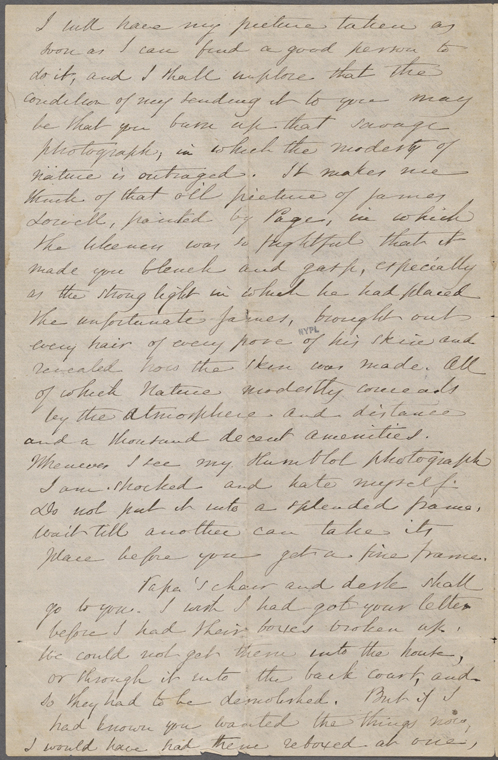 I will have my picture taken as
soon as I can find a good person to
do it, and I shall implore that the
condition of my sending it to you may
be that you burn up that savage
photograph, in which the modesty of
nature is outraged. It makes me
think of that oil picture of James
Lowell, painted by Page, in which
the likeness was so frightful that it
made you blench and gasp, especially
as the strong light in which he had placed
the unfortunate James, brought out
NYPL
every hair of every pore of his skin and
revealed how the skin was made. All
of which Nature modestly conceals
by the atmosphere and distance
and a thousand decent amenities.
Whenever I see my photograph
I am shocked and hate myself.
Do not put it into a splendid frame.
Wait till another can take its
place before you get a fine frame.
Papa's chair and desk shall
go to you. I wish I had got your letter
before I had their boxes broken up.
We could not get them into the house,
or through it into the back court, and
so they had to be demolished. But if I
had known you wanted the things now,
I would have had them reboxed at one,